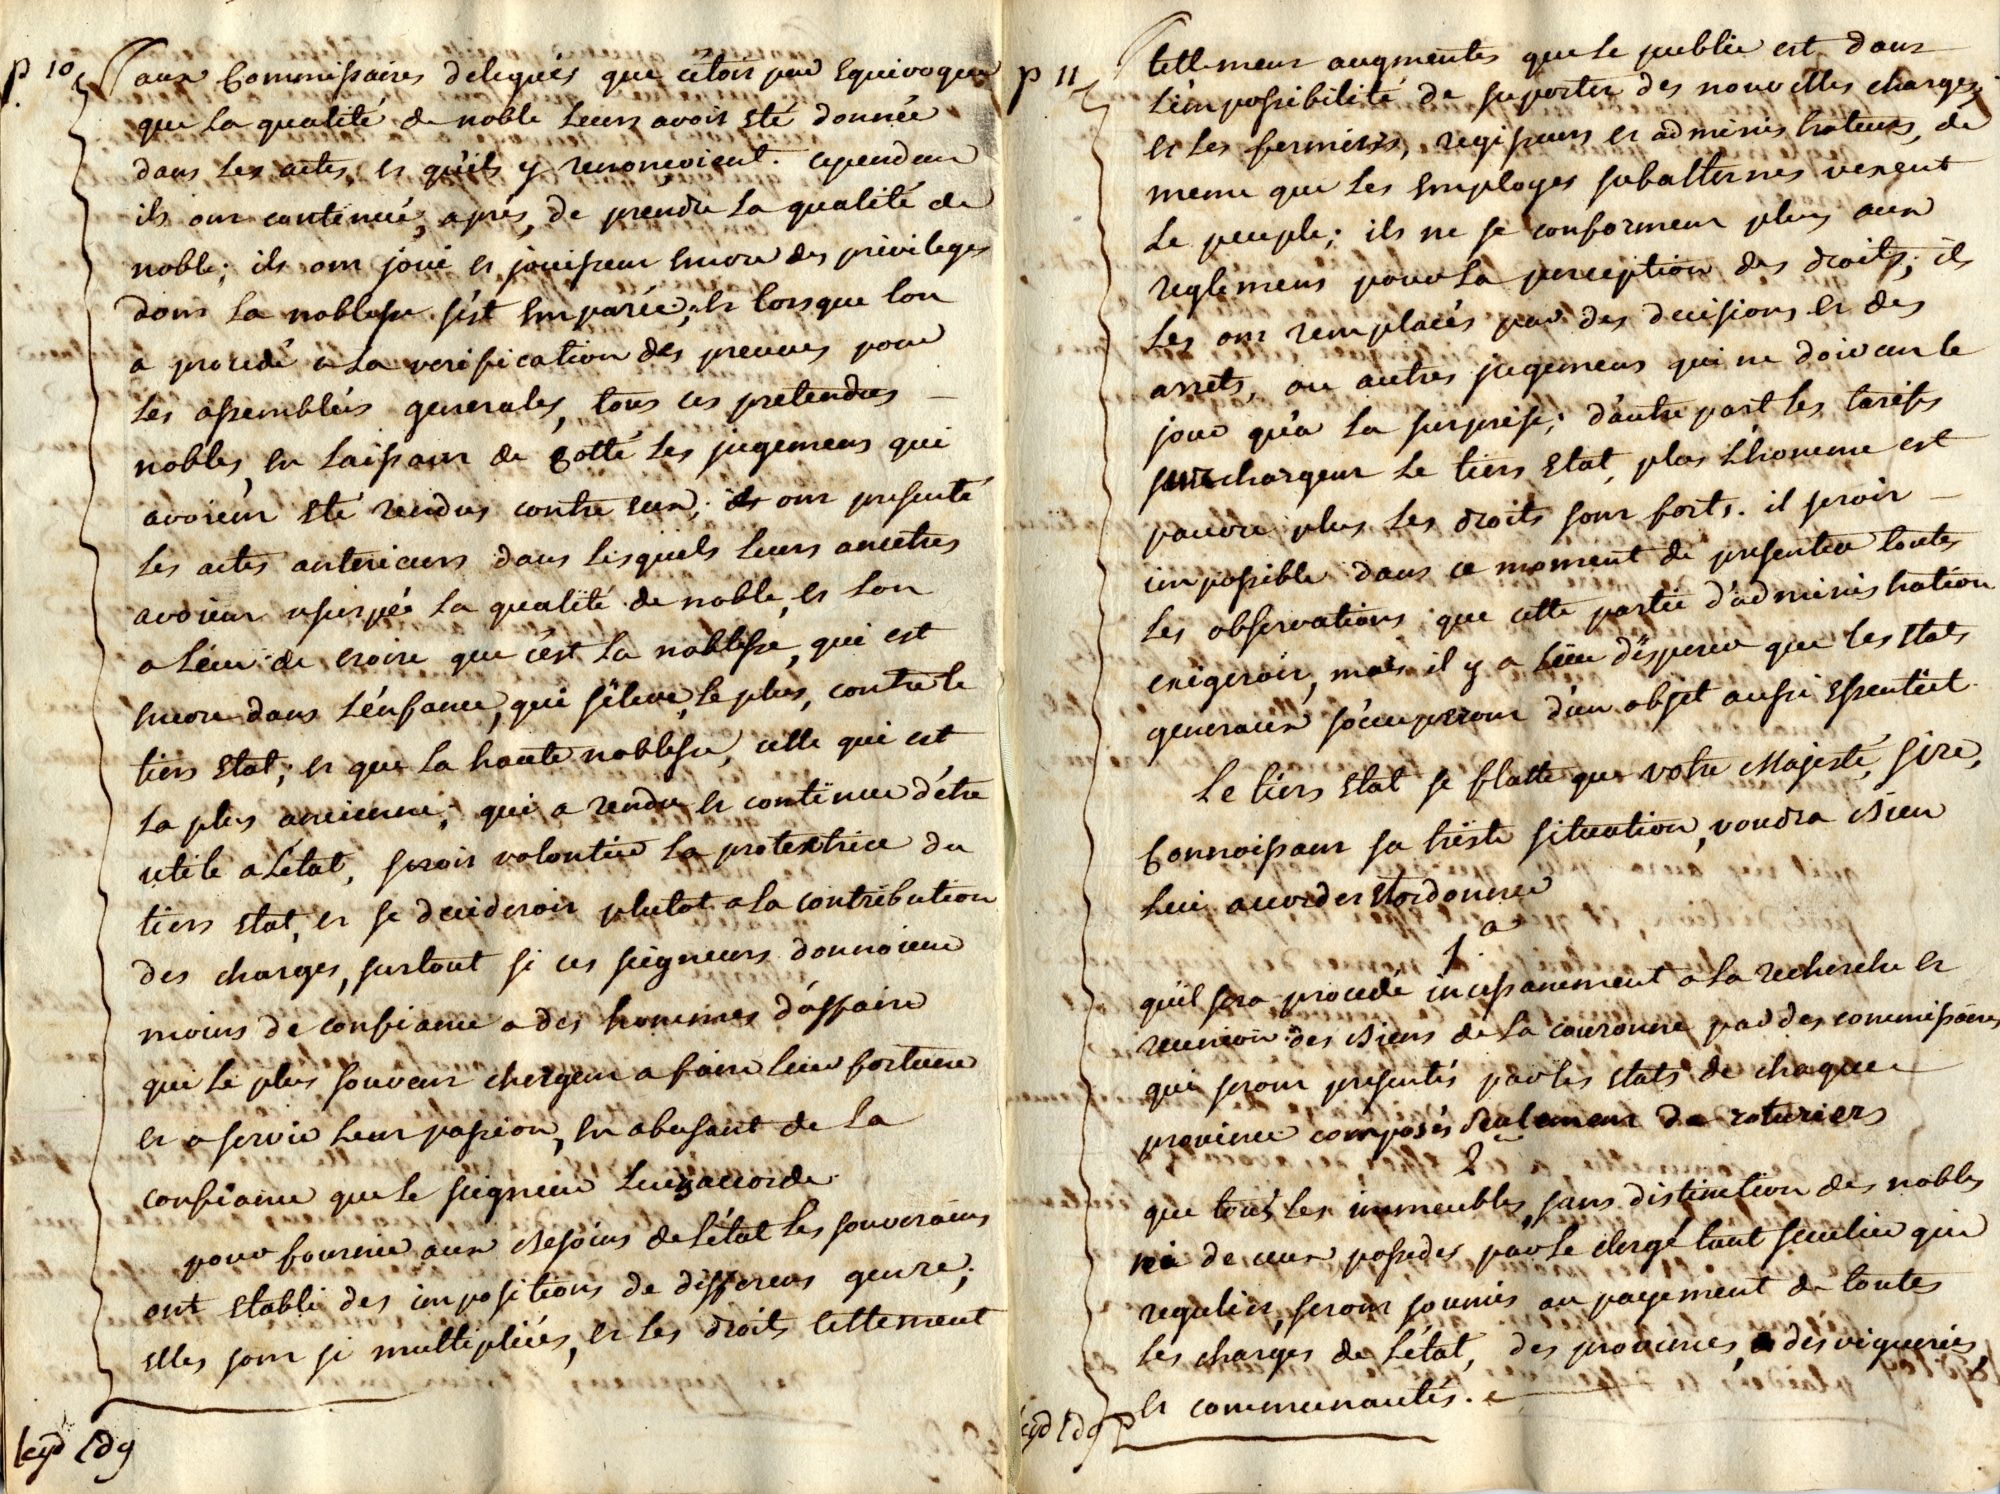 p 10
aux Commissaires delegués que cetoit par Equivoque
que la qualité de noble leurs avoit eté donnée
dans les actes, et quils y renonçoient. cependant
ils ont continué, aprés, de prendre la qualité de
noble; ils ont joui et jouissent encore des privileges
dont la noblesse s'ést Emparée; et lorsque lon
a procédé a la verification des preuves pour
les assemblées generales, tous ces pretendus
nobles, en laissant de cotté les jugemens qui
avoient eté rendus contre eux, ils ont presenté
les actes anterieurs dans lesquels leurs ancetres
avoient usurpée la qualité de noble, et lon
a lieu de croire que c'ést la noblesse, qui est
encore dans l'énfance, qui s'éleve, le plus, contre le
tiers Etat; et que la haute noblesse, celle qui est
la plus ancienne, qui a rendu et continue d'étre
utile a l'état, seroit volontier la protectrice du
tiers Etat, et se decideroit plutot a la contribution
des charges, surtout si ces seigneurs donnoient
moins de confiance a des hommes d'áffaire
qui le plus souvent chergent a faire leur fortune
et a servir leur passion, en abusant de la
confiance que le seigneur leurs accorde.
pour fournir aux Besoins de l'état les souverains
ont Etabli des impositions de differens genre;
Elles sont si multipliées, et les droits tellement
p 11
tellement augmentés que le public est dans
l'impossibilité de suporter des nouvelles charges;
et les fermiers, regisseurs et administrateurs, de
meme que les Employes subalternes vexent
le peuple; ils ne se conforment plus aux
reglemens pour la perception des droits; ils
les ont remplacés par des decisions et des
arrets, ou autres jugemens qui ne doivent le
jour qu'a la surprise; d'autre part les tarifs
surchargent le tiers Etat, plus l'homme est
pauvre plus les droits sont forts. il seroit
impossible dans ce moment de presenter toutes
les observations que cette partie d'administration
exigeroit, mais il y a lieu d'esperer que les Etats
generaux s'occuperont d'un objet aussi Essentiel.
Le tiers Etat se flatte que votre Majesté, Sire,
Connoissant sa triste situation, voudra Bien
lui accorder Et ordonner
1°
quil sera procedé incessament a la recherche et
reunion des Biens de la couronne par des commissaires
qui seront presentés par les Etats de chaque
province composés seulement de roturiers
2°
que tous les immeubles, sans distinction des nobles
ni de ceux possedes par le clergé tant seculier que
regulier, seront soumis au payement de toutes
les charges de l'état, des provinces, des vigueries,
et communautés.